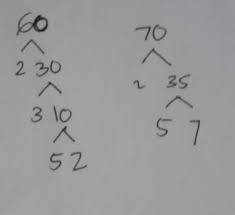 60
2 30
3 10
5 2
70
2 35
5 7